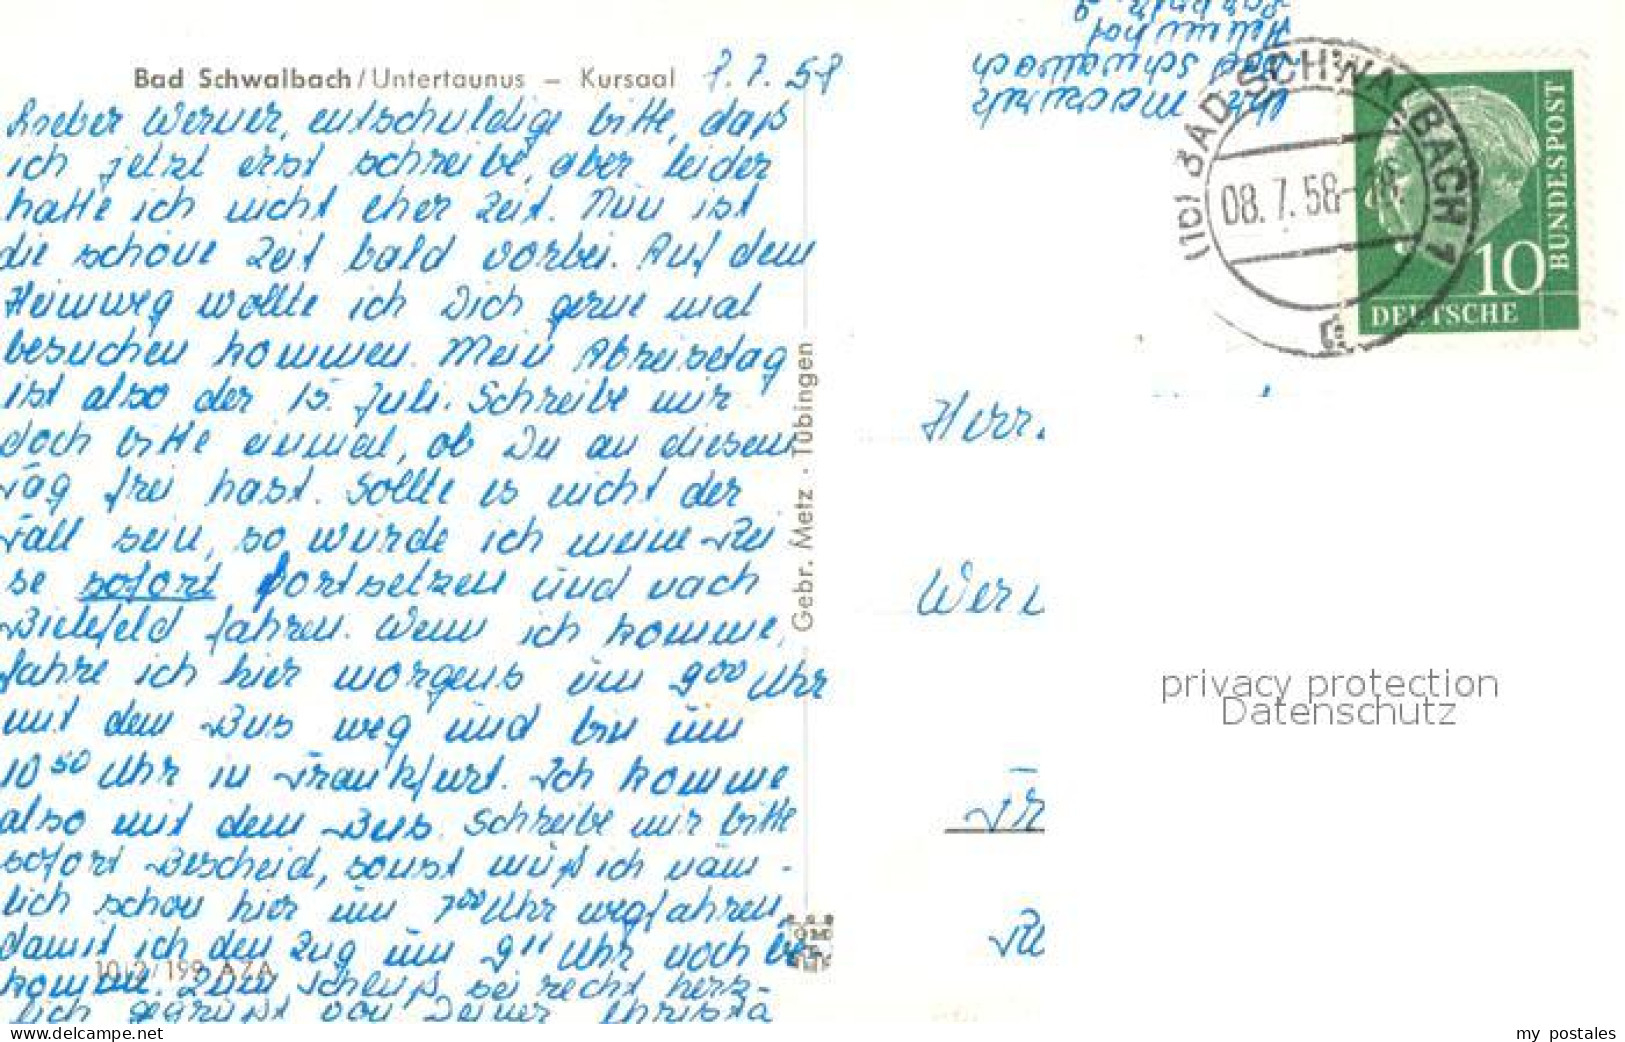 Bad Schwalbach/Untertaunus – Kursaal 7.7.58
Lieber Werner, entschuldige bitte, daß
ich jetzt erst schreibe, aber leider
hatte ich nicht eher Zeit. Nun ist
die schöne Zeit bald vorbei. Auf dem
Heimweg wollte ich Dich gerne mal
besuchen kommen. Mein Abreisetag
ist also der 15. Juli. Schreibe mir
doch bitte einmal, ob Du an diesem
Tag frei hast. Sollte es nicht der
Fall sein, so würde ich meine Rei
se sofort fortsetzen und nach
Bielefeld fahren. Wenn ich komme,
fahre ich hier morgens um 9⁰⁰ Uhr
mit dem Bus weg und bin um
10⁵⁰ Uhr in Frankfurt. Ich komme
also mit dem Bus. Schreibe mir bitte
sofort Bescheid, sonst muß ich näm-
lich schon hier um 7⁰⁰ Uhr wegfahren,
damit ich den Zug um 9¹¹ Uhr noch be
komme. Zum Schluß sei recht herz-
lich gegrüßt von Deiner Christa
10/2/199 AZA
Gebr. Metz · Tübingen
Bad Schwalbach
(16) BAD SCHWALBACH 1
08.7.58
DEUTSCHE
BUNDESPOST
10
Herr
Wer
Fr
privacy protection
Datenschutz
www.delcampe.net
my postales